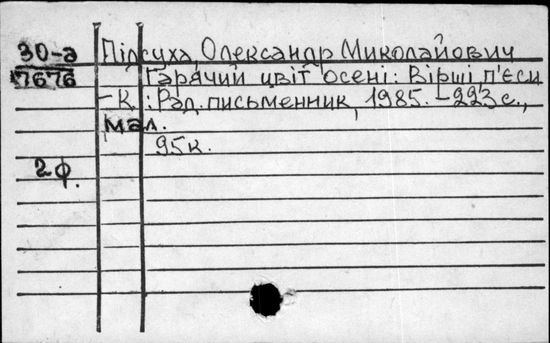 30-а Підсуха, Олександр Миколайович
7676 Гарячий цвіт осені: Вірші п'єси
- К.: Рад. письменник, 1985. - 223 с.,
мал.
95к.
2ф.